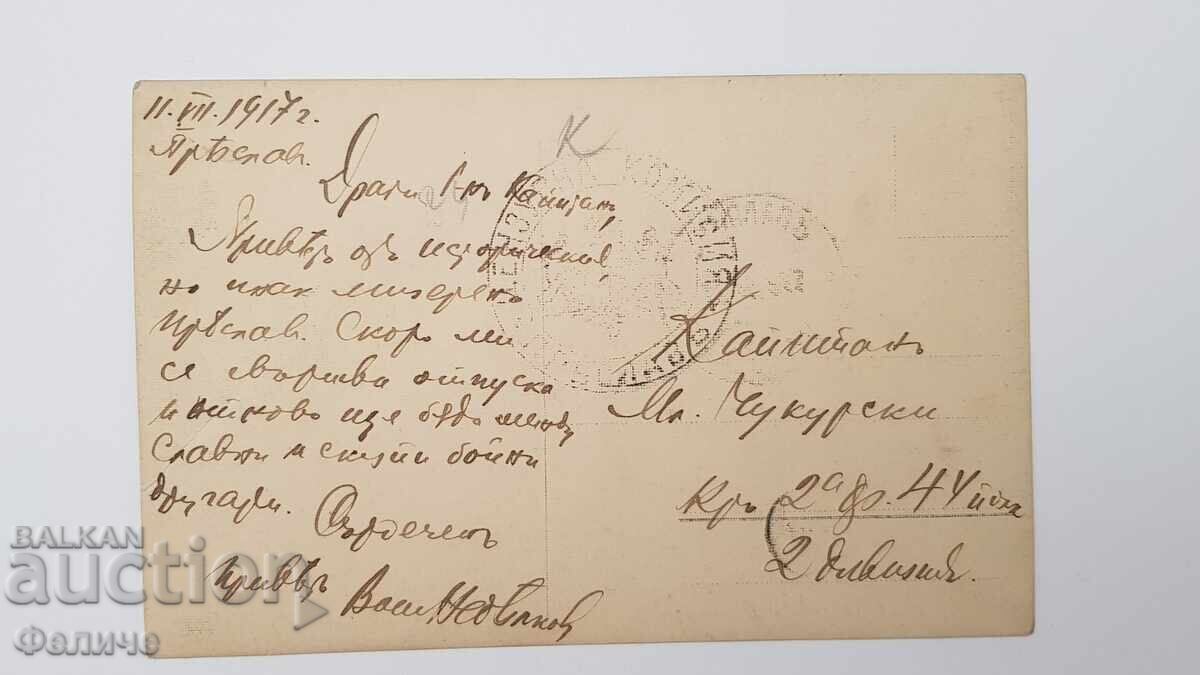 11.VII.1917 г.
Прѣслав.
К
Драги Г-нъ Капитанъ,
Привѣтъ отъ историческия,
но инак мизеренъ
Прѣслав. Скоро ми
се свършва отпуска
и отново ще бѫда между
славни и скъпи бойни
другари. Сърдеченъ
привѣтъ
Вас. Недѣлков
Капитанъ
Мл. Чукурски
Кръ 2а др. 44 полкъ
2 дивизия.
BALKAN
auction
Феличе